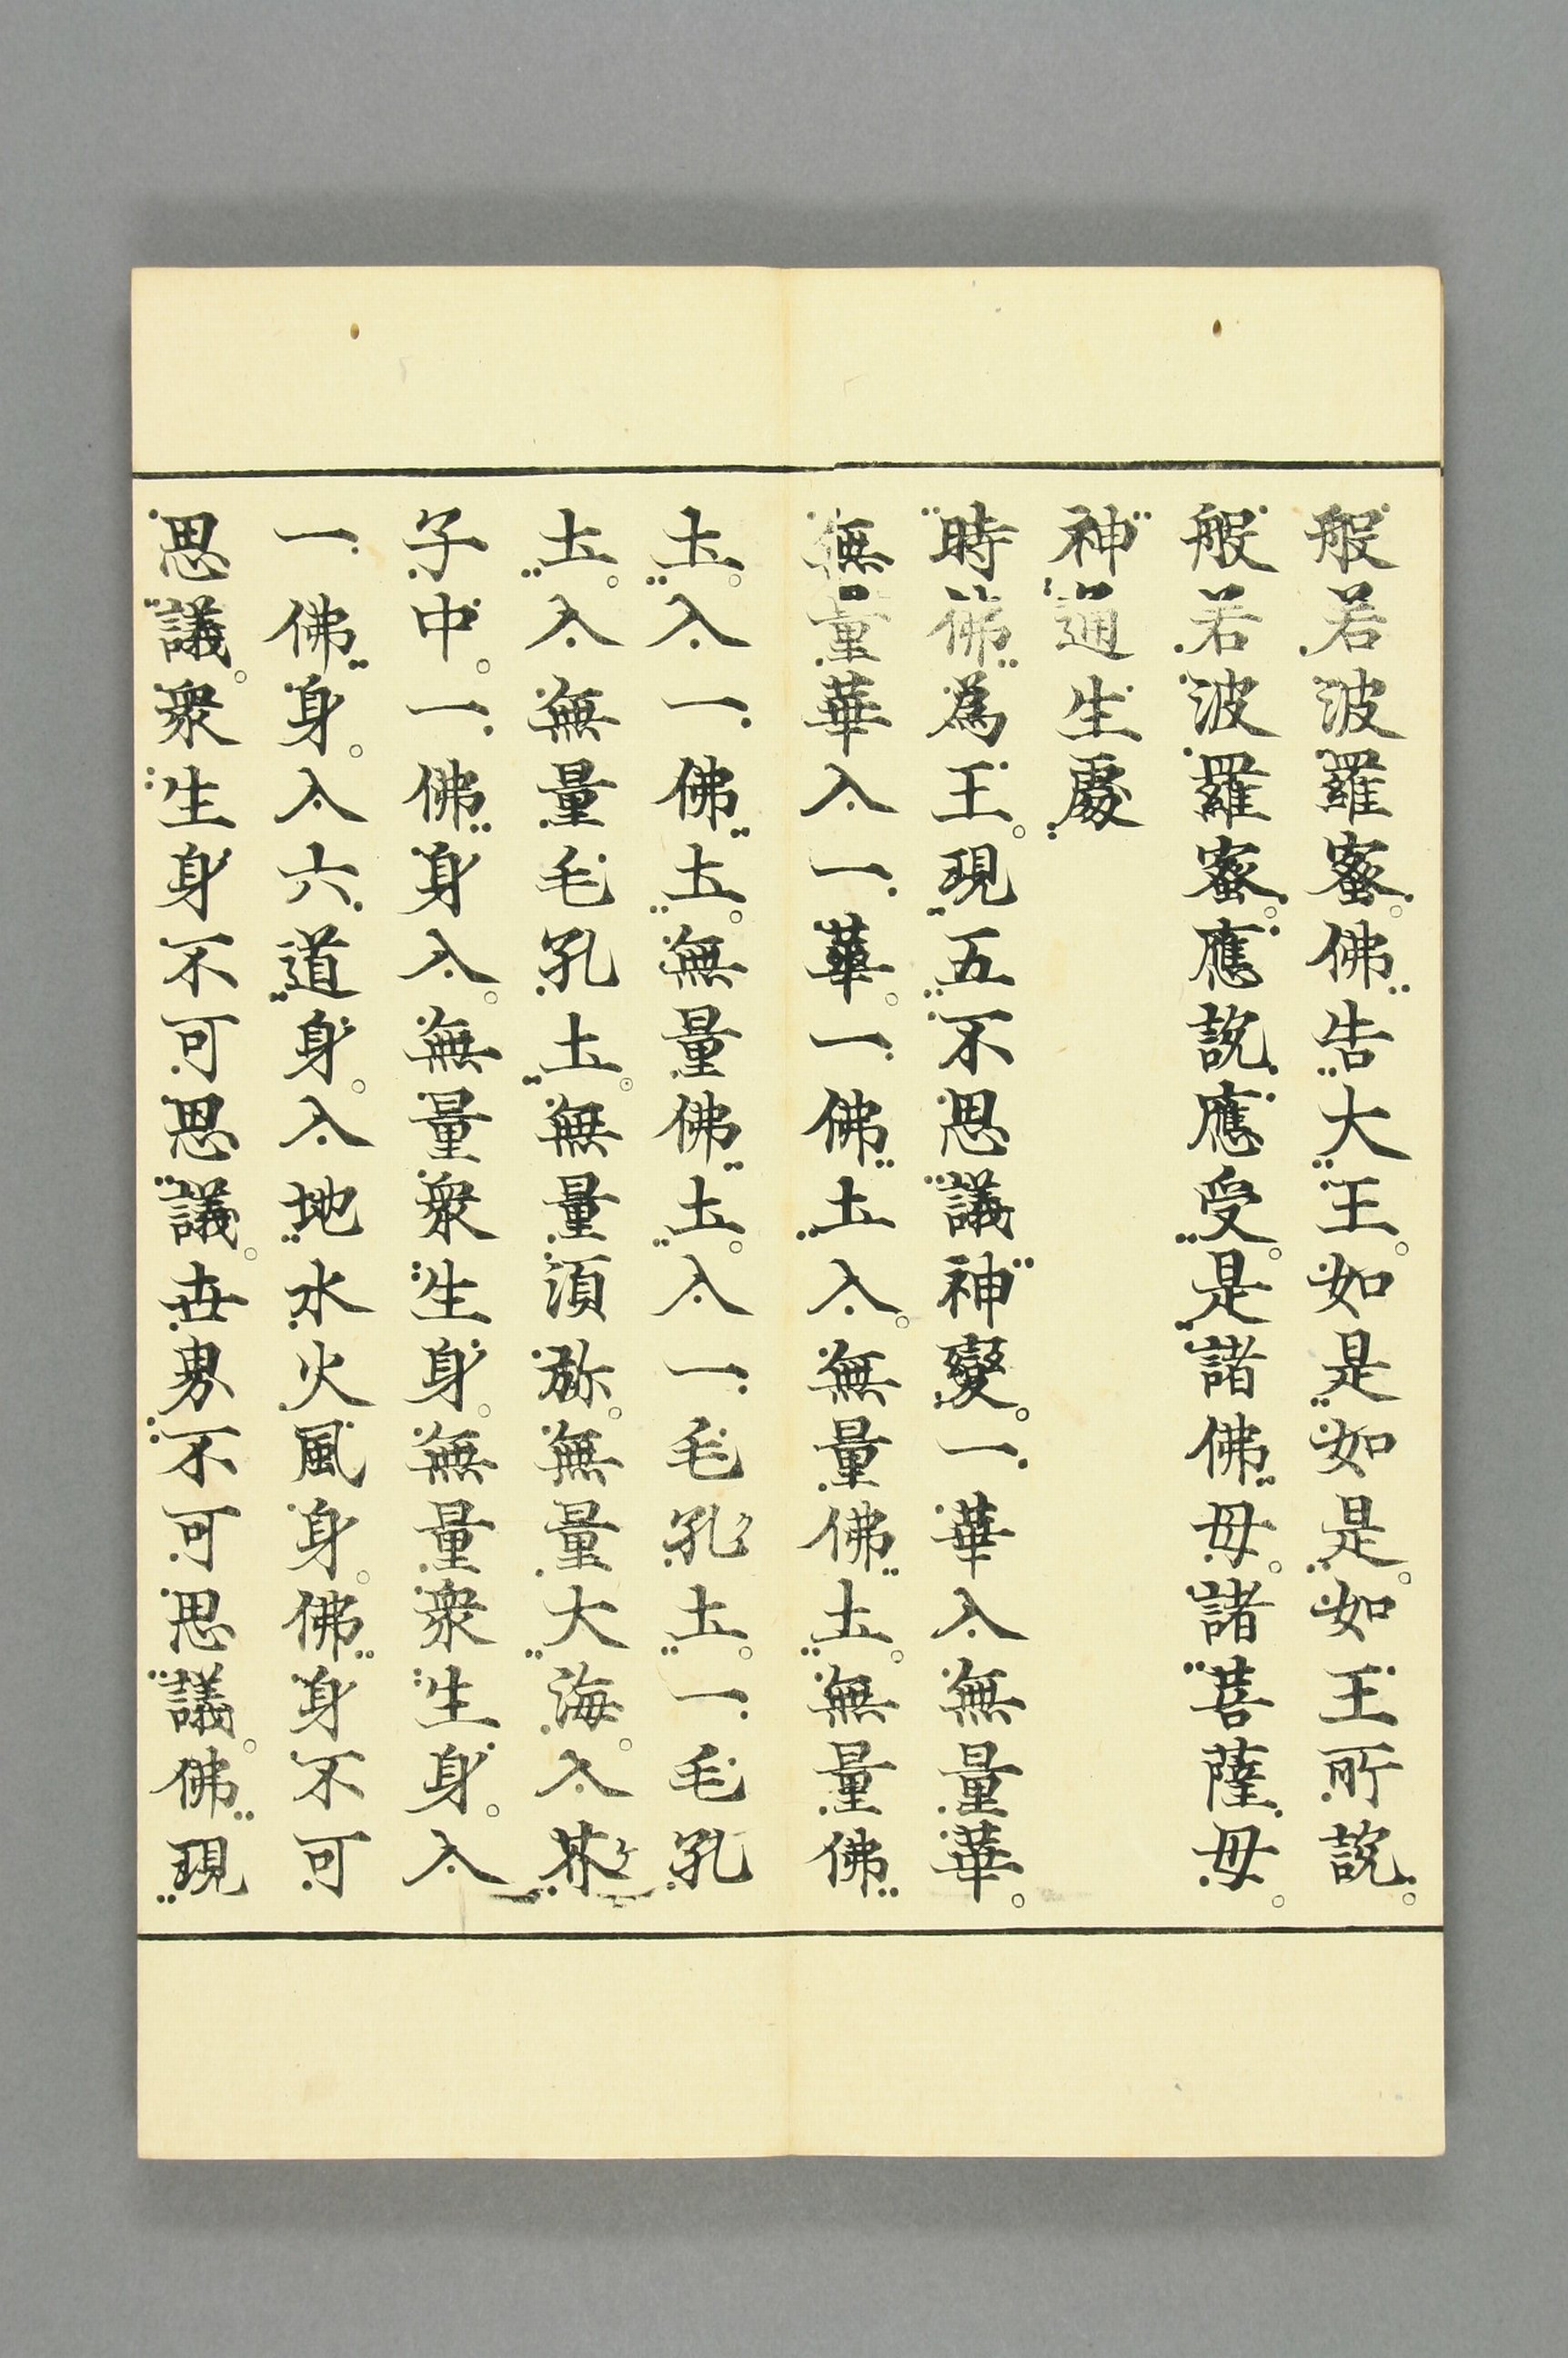 般若波羅蜜佛告大王如是如是如王所說
般若波羅蜜應說應受是諸佛母諸菩薩母
神通生處
時佛為王現五不思議神變一華入無量華
無量華入一華一佛土入無量佛土無量佛
土入一佛土無量佛土入一毛孔土一毛孔
土入無量毛孔土無量須弥無量大海入芥
子中一佛身入無量衆生身無量衆生身入
一佛身入六道身入地水火風身佛身不可
思議衆生身不可思議世界不可思議佛現